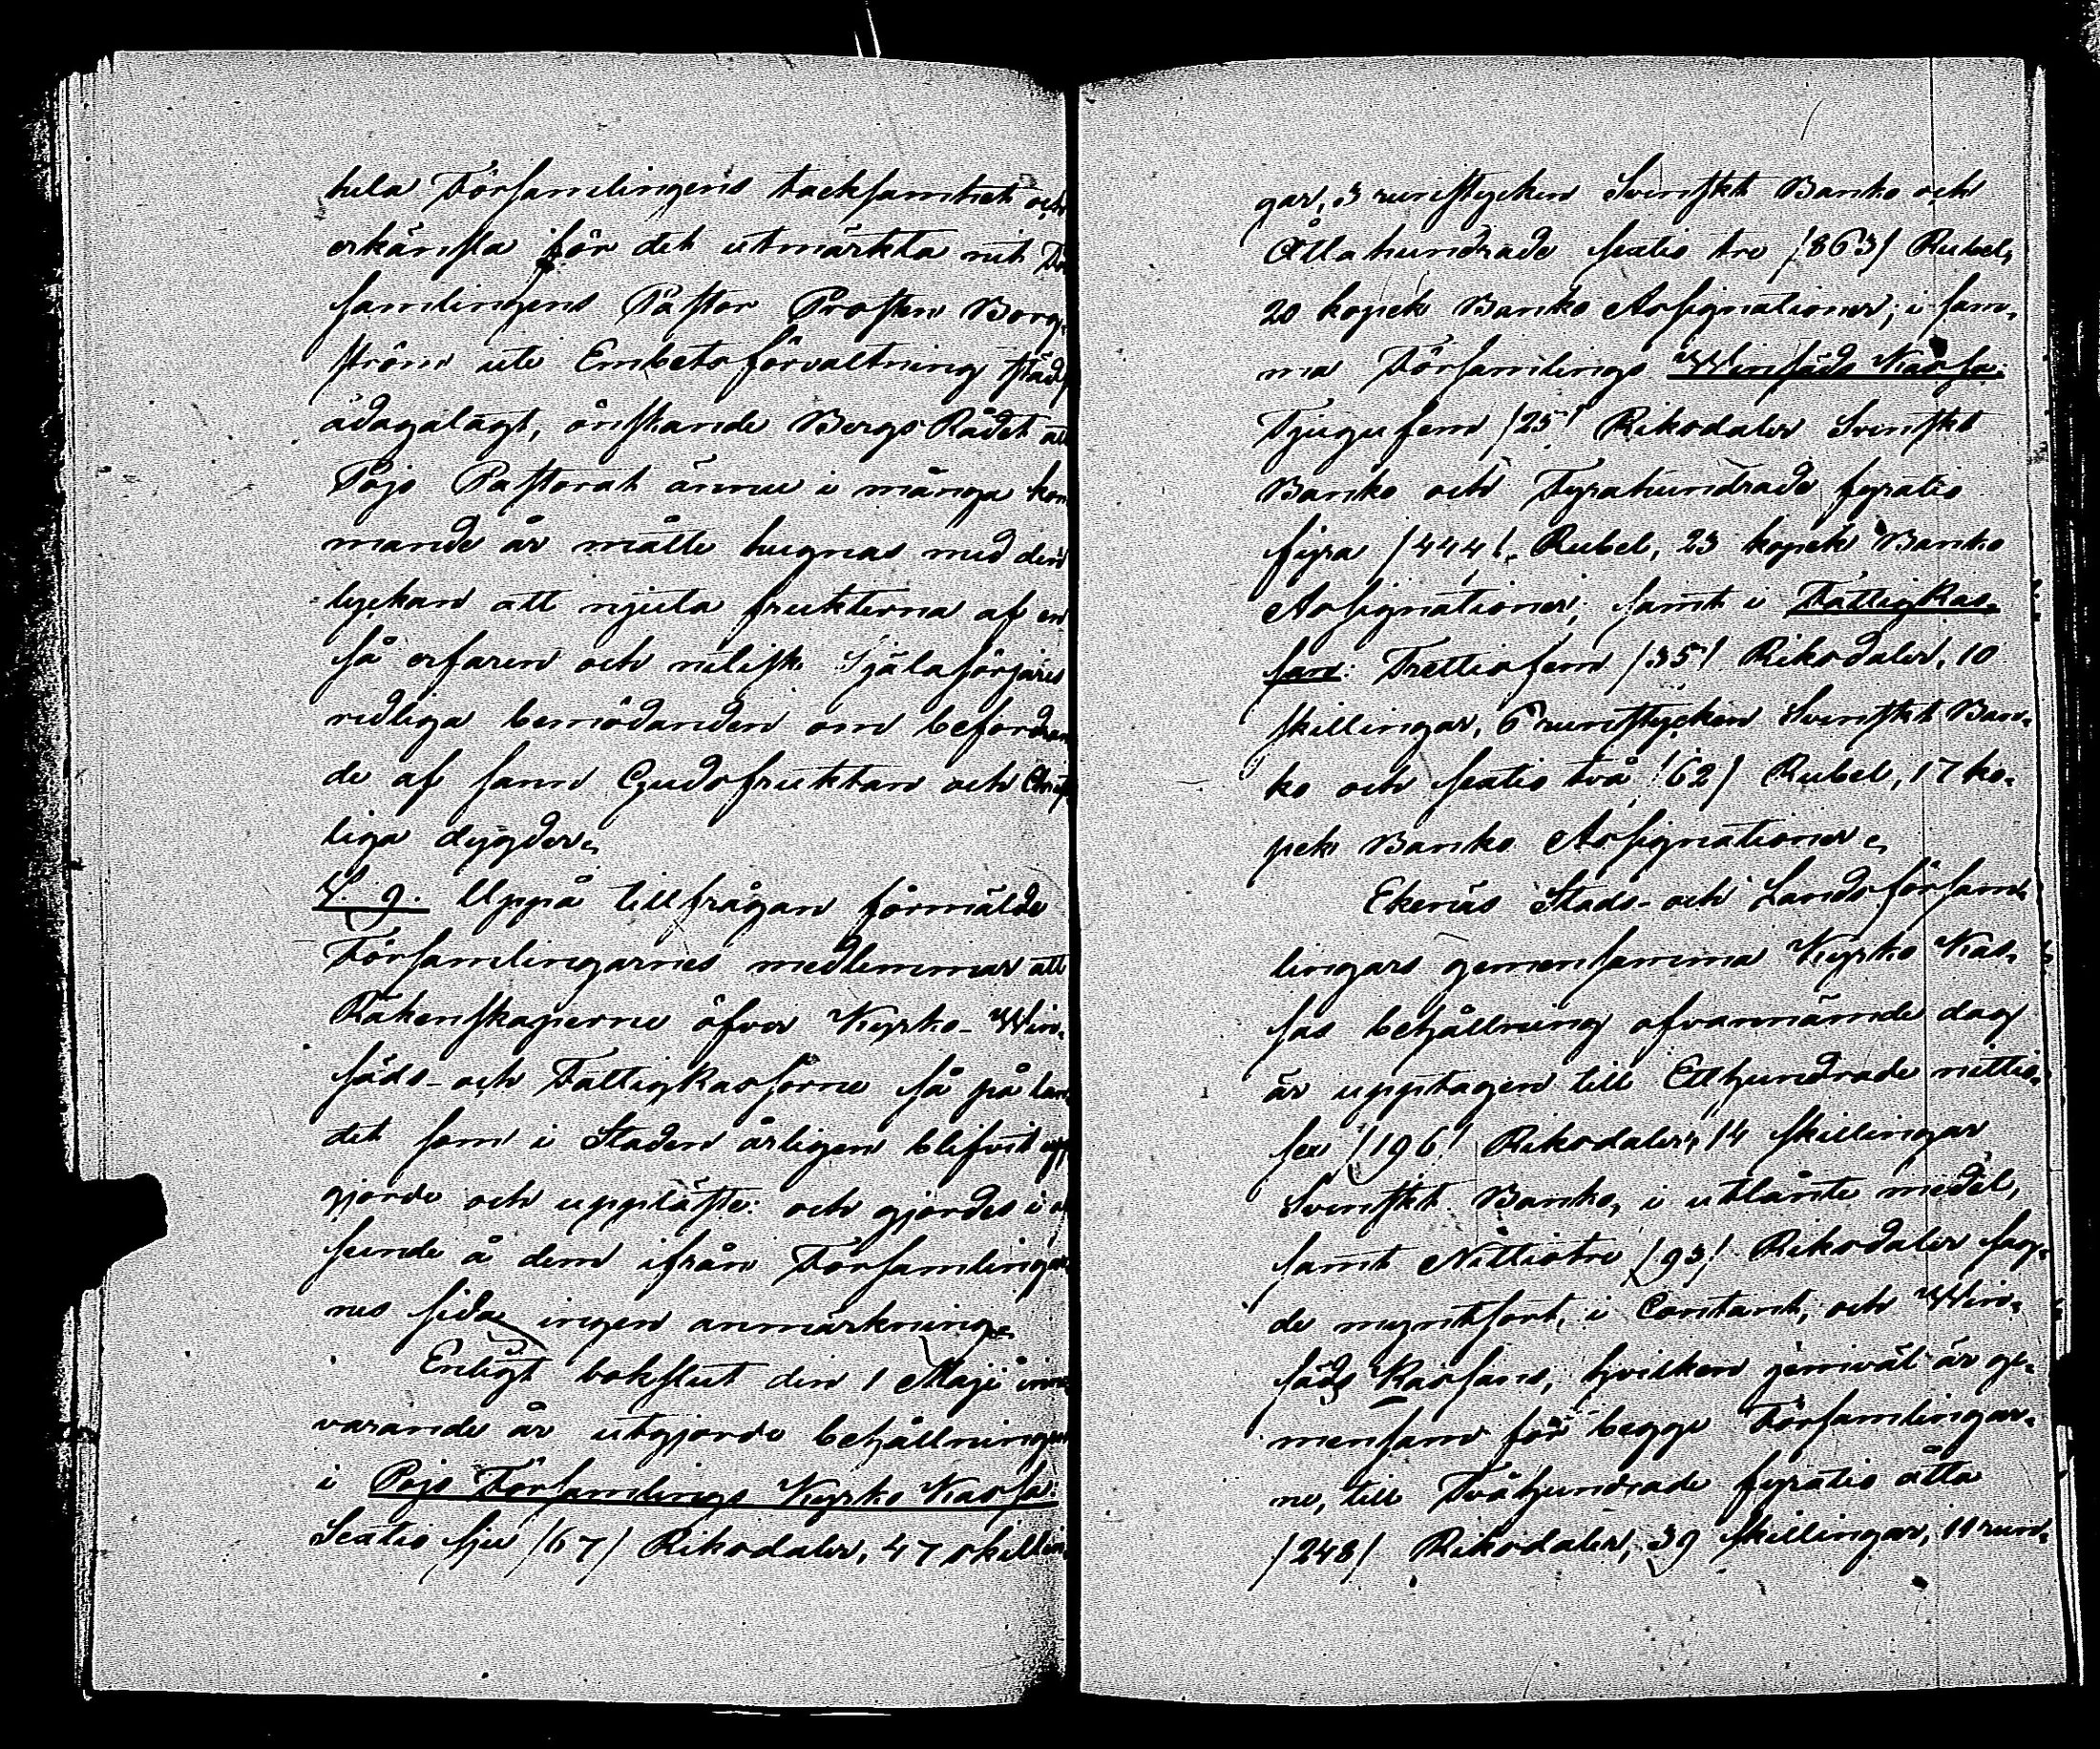 hela Församlingens tacksamhet och
erkänsla för det utmärkta nit För
samlingens Pastor Prosten Borg-
ström uti Embetsförvaltning städs
ådagalagt, önskande BergsRådet att
Pojo Pastorat ännu i många kom
mande år måtte hugnas med den
lyckan att njuta frukterna af en
så erfaren och nitisk Själasörjares
redliga bemödanden om befordran
de af sann Gudsfruktan och Christ
liga dygder.
§. 9. Uppå tillfrågan förmälde
Församlingarnes medlemmar att
Räkenskaperne öfver Kyrko- Win-
säds- och Fattigkassorne så på lan
det som i Staden årligen blifvit upp
gjorde och uppläste: och gjordes i
seende å dem ifrån Församlingar
nes sida ingen anmärkning.
Enligt bokslut den 1 Maji inne
varande år utgjorde behållningen
i Pojo Församlings Kyrko Kassa:
Sextio sju /67/ Riksdaler, 47 skillin
gar, 3 runstycken Svenskt Banko och
Åttahundrade sextio tre /863/ Rubel,
20 kopek Banko Assignationer; i sam-
ma Församlings Winsäds Kassa:
Tjugufem /25/ Riksdaler Svenskt
Banko och Fyrahundrade fyratio
fyra /444/. Rubel, 23 kopek Banko
Assignationer; samt i FattigKas-
san: Trettiofem /35/ Riksdaler, 10
skillingar, 6 runstycken Svenskt Ban-
ko och sextio två /62/ Rubel, 17 ko-
pek Banko Assignationer.
Ekenäs Stads- och Landsförsam-
lingars gemensamma Kyrko Kas-
sas behållning ofvannämde dag
är upptagen till Etthundrade nittio-
sex /196/ Riksdaler, 14 skillingar
Svenskt Banko, i utlånte medel,
samt Nittiotre /93/ Riksdaler sag-
de myntsort, i Contant, och Win-
säds Kassans, hvilken jemväl är ge-
mensam för begge Församlingar-
ne, till Tvåhundrade fyratio åtta
/248/ Riksdaler, 39 skillingar, 11 run-